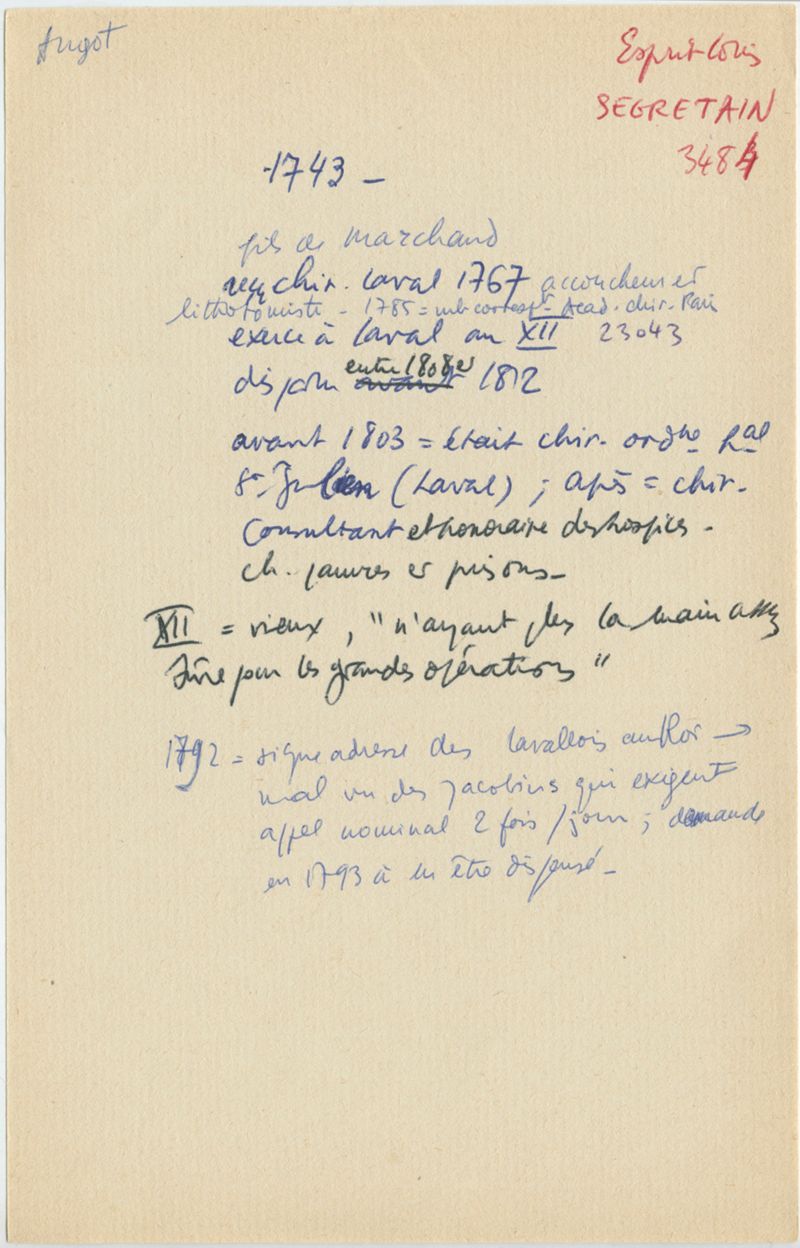 Angot
Esprit-Louis
SEGRETAIN
3484
1743 –
fils de marchand
reçu chir. Laval 1767 accoucheur et
lithotomiste – 1785 = mb corresp.t Acad. chir. Paris
exerce à Laval an XII 23043
disparu avant entre 1808 et 1812
avant 1803 = était chir. ord.re h.al
St-Julien (Laval) ; après = chir.
consultant et honoraire des hospices –
ch. pauvres et prisons –
XII = vieux, "n'ayant plus la main assez
sûre pour les grandes opérations"
1792 = signe adresse des lavallois au Roi →
mal vu des Jacobins qui exigent
appel nominal 2 fois / jour ; demande
en 1793 à en être dispensé –